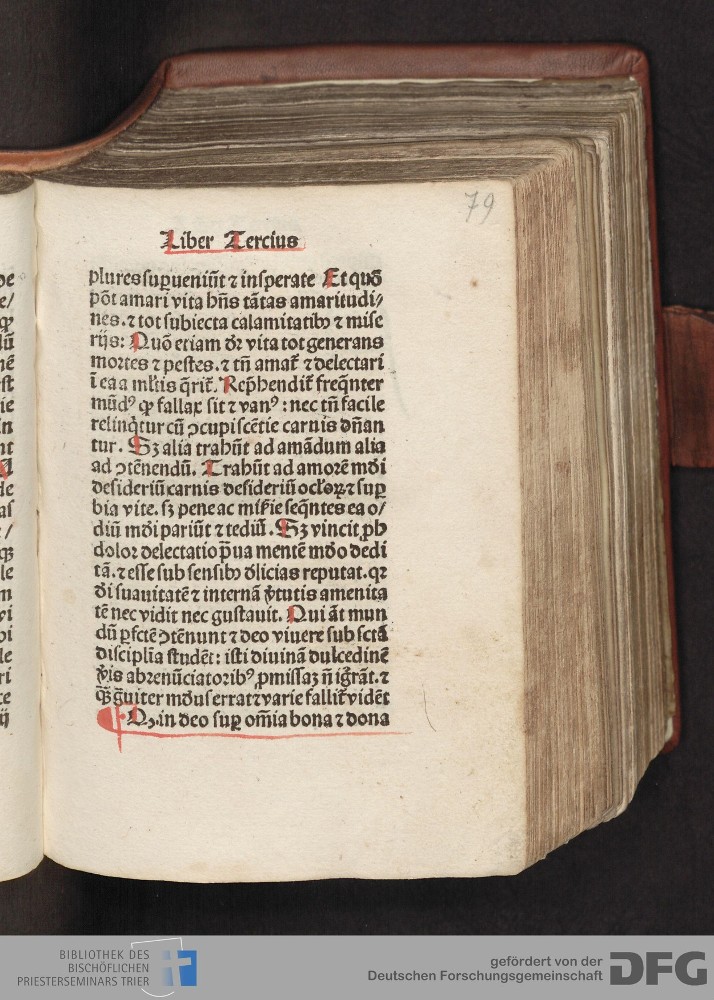 79
Liber Tercius
plures suꝑueniũt ⁊ insperate Et quõ
põt amari vita hñs tãtas amaritudi/
nes. ⁊ tot subiecta calamitatibꝫ ⁊ mise
rijs: Quõ etiam dr̃ vita tot generans
mortes ⁊ pestes. ⁊ tñ amat̃ ⁊ delectari
ĩ ea a ml̃tis q̃rit̃. Rep̃hendit̃ freq̃nter
mũdꝰ ꝙ fallax sit ⁊ vanꝰ: nec tñ facile
relinq̃tur cũ ↄcupiscẽtie carnis dñan
tur. Sꝫ alia trahũt ad amãdum alia
ad ↄtẽnendũ. Trahũt ad amorẽ mũdi
desideriũ carnis desideriũ ocl̃oꝝ ⁊ suꝑ
bia vite. sꝫ pene ac mis̃ie seq̃ntes ea o/
diũ mũdi pariũt ⁊ tediũ. Sꝫ vincit ꝓh
dolor delectatio p̃ua mentẽ mũdo dedi
tã. ⁊ esse sub sensibꝫ dl̃icias reputat. qꝛ
dĩ suauitatẽ ⁊ internã ṽtutis amenita
tẽ nec vidit nec gustauit. Qui ãt mun
dũ ꝑfctẽ ↄtẽnunt ⁊ deo viuere sub sctã
disciplĩa studẽt: isti diuinã dulcedinẽ
ṽis abrenũciatoribꝰ ꝓmissaꝫ ñ ig̃rãt. ⁊
q̃ꝫ g̃uiter mũdus errat ⁊ varie fallit̃ vidẽt
Qꝫ in deo suꝑ om̃ia bona ⁊ dona
BIBLIOTHEK DES
BISCHÖFLICHEN
PRIESTERSEMINARS TRIER
gefördert von der
Deutschen Forschungsgemeinschaft
DFG